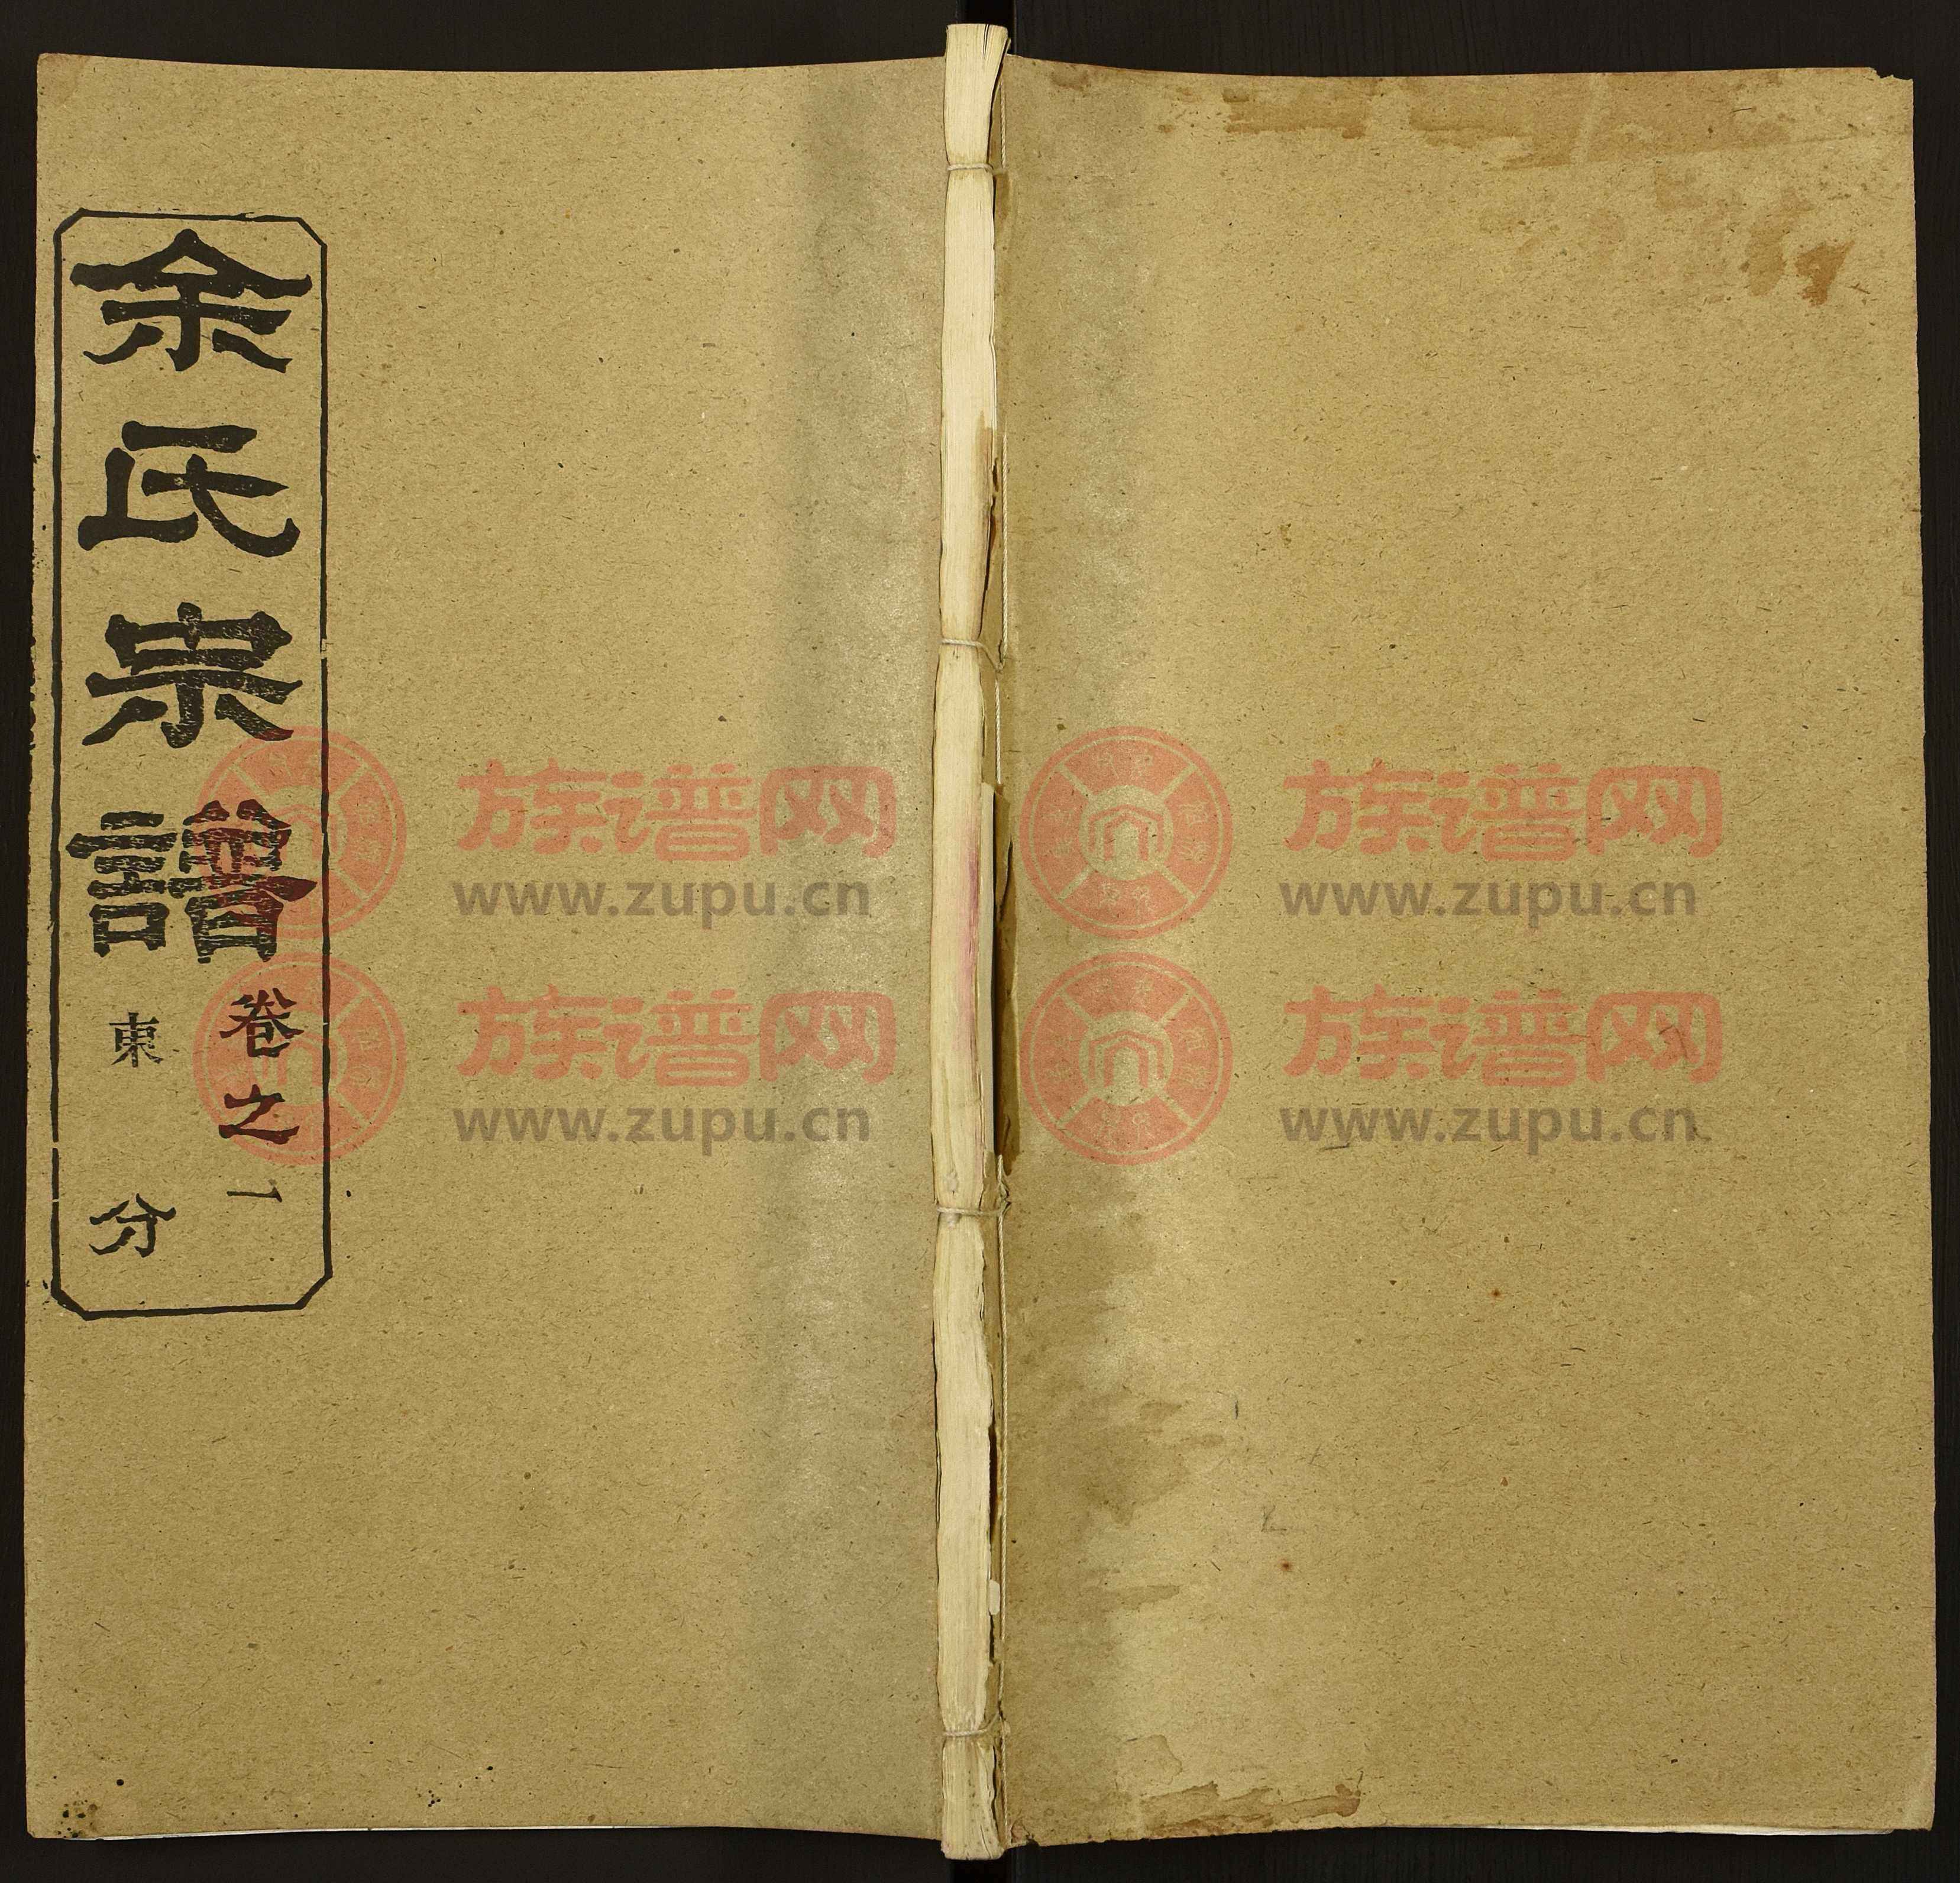 余氏宗譜
卷之一
東分
族谱网
www.zupu.cn
族谱网
www.zupu.cn
族谱网
www.zupu.cn
族谱网
www.zupu.cn